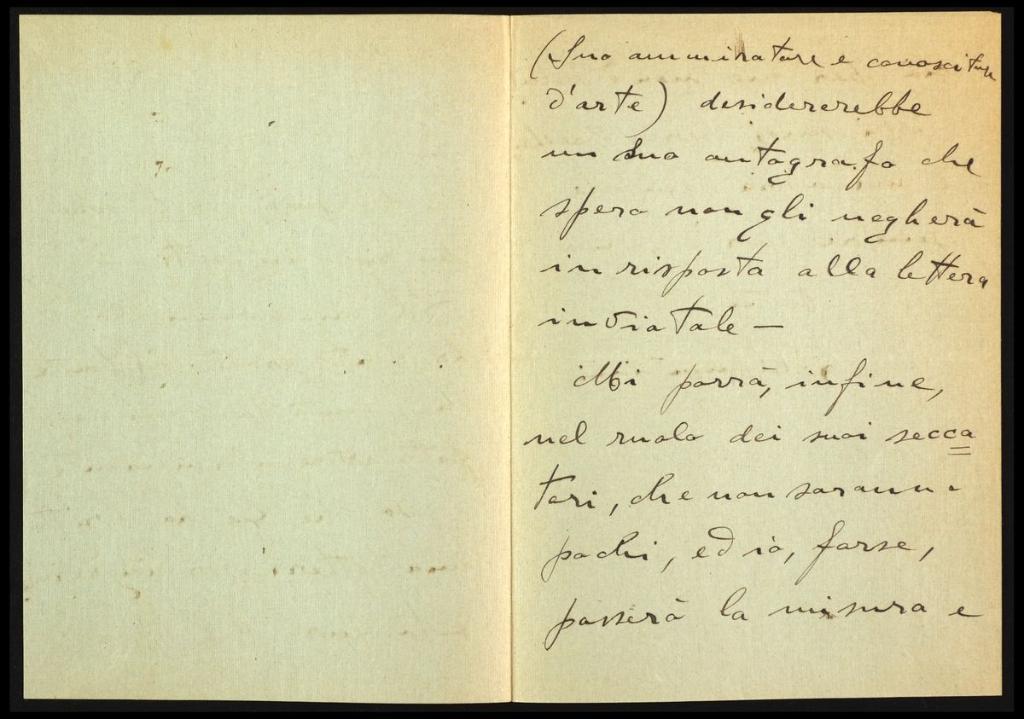 (Suo ammiratore e conoscitore
d'arte) desidererebbe
un suo autografo che
spero non gli negherà
in risposta alla lettera
inviatale —
Mi porrà, infine,
nel ruolo dei suoi secca
tori, che non saranno
pochi, ed io, forse,
passerò la misura e